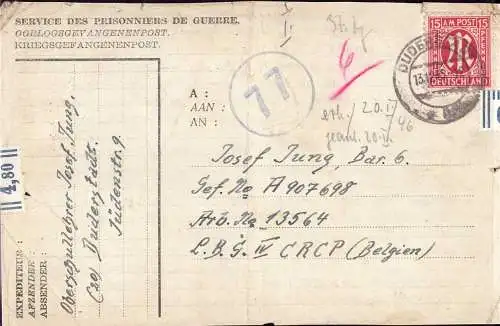 SERVICE DES PRISONNIERS DE GUERRE.
OORLOGSGEVANGENENPOST.
KRIEGSGEFANGENENPOST.
15 A.M. POST 15
PFENNIG
DEUTSCHLAND
6
77
A :
AAN :
AN :
erh. 20. IV
geantw. 20. IV. 46
Josef Jung, Bar. 6.
Gef. No A 907698
Arb. No 13564
L.B.G. IV CRCP (Belgien)
4,80
EXPEDITEUR :
AFZENDER :
ABSENDER :
Oberschullehrer Josef Jung,
(20) Duderstadt.
Jüdenstr. 9